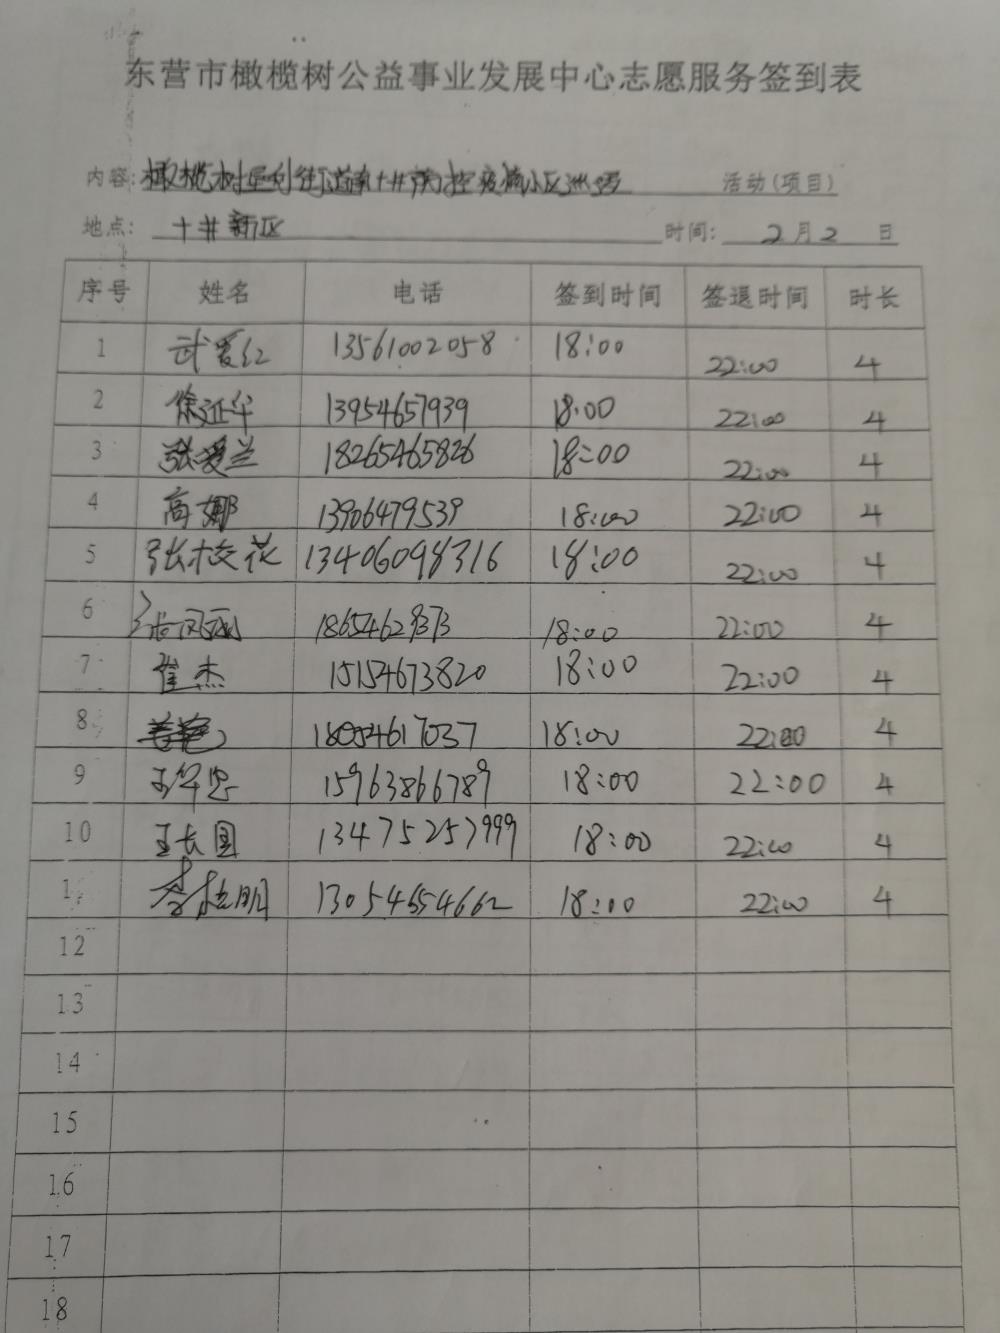 东营市橄榄树公益事业发展中心志愿服务签到表
内容: 橄榄树垦利街道南十井防控疫情小区巡逻 活动(项目)
地点: 十井新区 时间: 2月2日
序号 姓名 电话 签到时间 签退时间 时长
1 武爱红 13561002058 18:00 22:00 4
2 徐证华 13954657939 18:00 22:00 4
3 张爱兰 18265465826 18:00 22:00 4
4 高娜 13906479539 18:00 22:00 4
5 张校花 13406098316 18:00 22:00 4
6 18:00 22:00 4
7 崔杰 15154673820 18:00 22:00 4
8 18:00 22:00 4
9 15963866789 18:00 22:00 4
10 王长国 13475257999 18:00 22:00 4
1 18:00 22:00 4
12
13
14
15
16
17
18